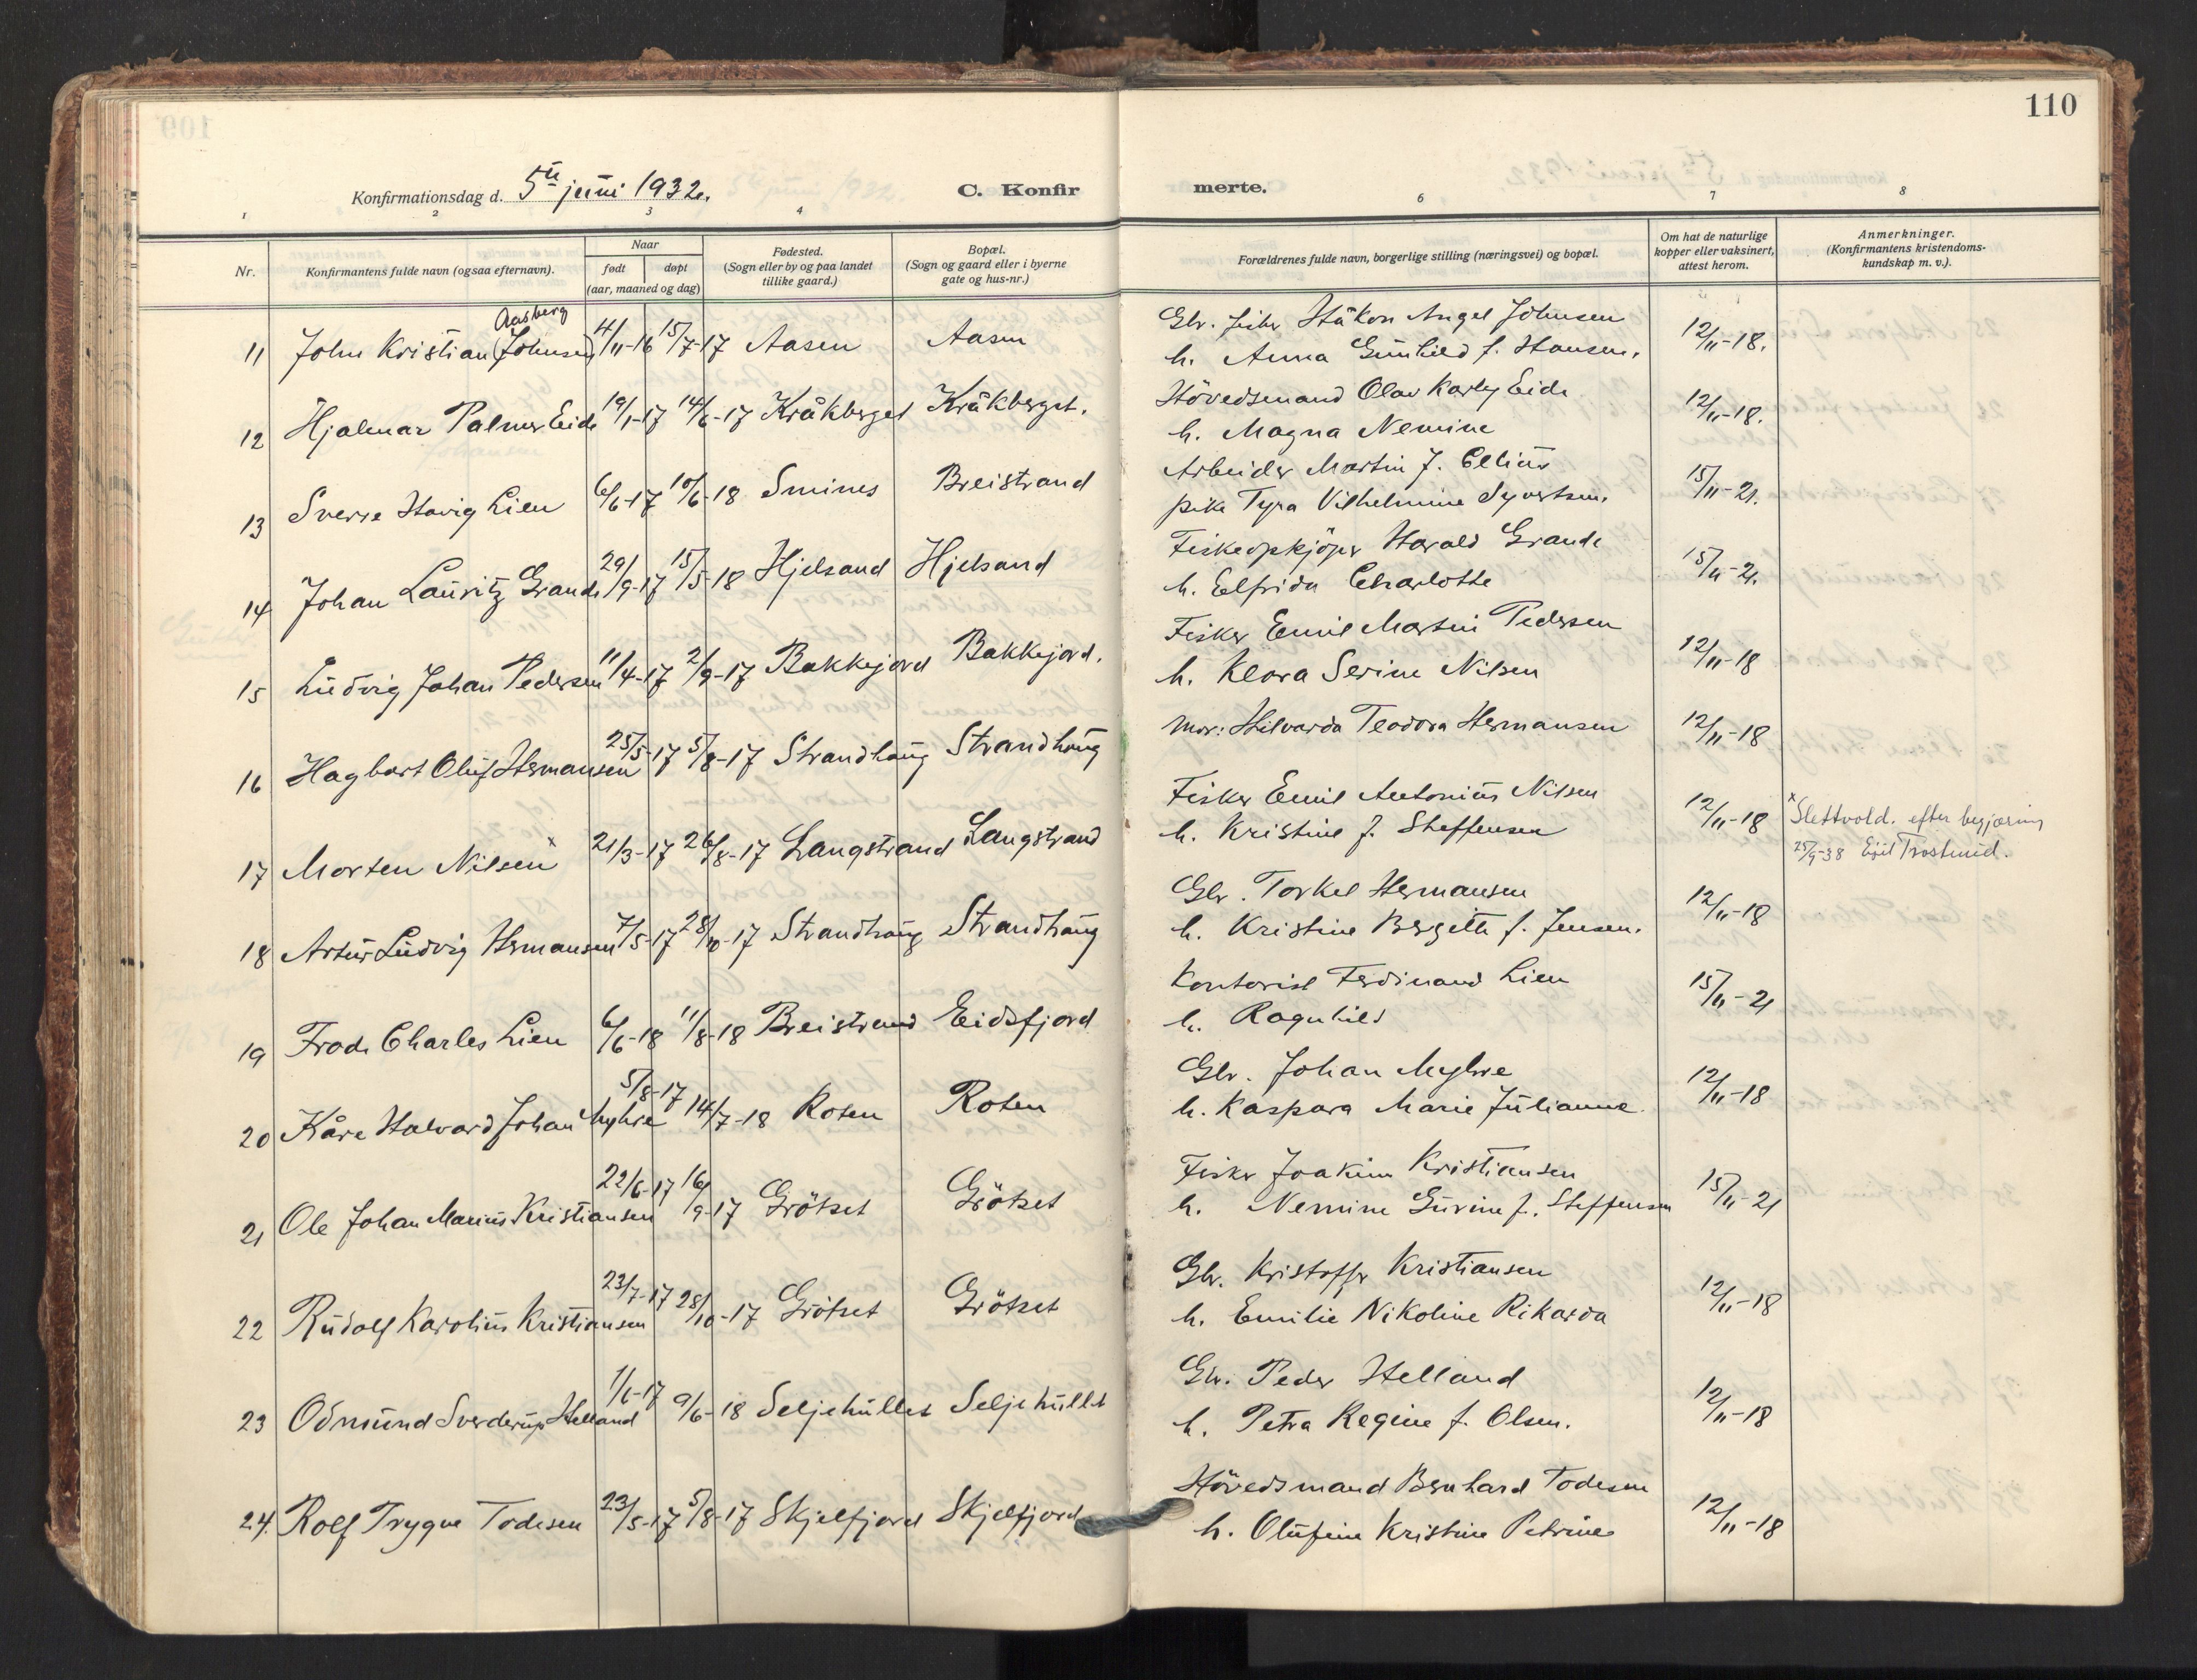 110
Konfirmationsdag d. 5te juni 1932.
C. Konfir
merte.
1 2 3 4 6 7 8
Nr.
Konfirmantens fulde navn (ogsaa efternavn).
Naar
født døpt
(aar, maaned og dag)
Fødested.
(Sogn eller by og paa landet
tillike gaard.)
Bopæl.
(Sogn og gaard eller i byerne
gate og hus-nr.)
Forældrenes fulde navn, borgerlige stilling (næringsvei) og bopæl.
Om hat de naturlige
kopper eller vaksinert,
attest herom.
Anmerkninger.
(Konfirmantens kristendoms-
kundskap m. v.).
Aasberg
11 John Kristian (Johnsen) 4/11-16 15/7-17 Aasen Aasen
Gbr. fisker Håkon Angel Johnsen
h. Anna Gunhild f. Hansen. 12/11-18.
12 Hjalmar Palmer Eide 19/1-17 14/6-17 Kråkberget Kråkberget.
Hövedsmand Olav Karley Eide
h. Magna Nemine 12/11-18.
13 Sverre Havig Lien 6/6-17 10/6-18 Smines Breistrand
Arbeider Martin J. Ellius
pike Tyra Vilhelmine Syvertsen. 15/11-21.
14 Johan Lauritz Grande 29/9-17 15/5-18 Hjelsand Hjelsand
Fiskeopkjöper Harald Grande
h. Elfrida Charlotte 15/11-21.
15 Ludvig Johan Pedersen 11/4-17 2/9-17 Bakkejord Bakkejord.
Fisker Emil Martin Pedersen
h. Klara Serine Nilsen 12/11-18
16 Hagbart Oluf Hermansen 25/5-17 5/8-17 Strandhaug Strandhaug
Mor: Hilvarda Teodora Hermansen 12/11-18
17 Morten Nilsen x 21/3-17 26/8-17 Langstrand Langstrand
Fisker Emil Antonius Nilsen
h. Kristine f. Steffensen 12/11-18
x Slettvold. efter begjæring
25/9-38 Egil Trostmid.
18 Artur Ludvig Hermansen 7/5-17 28/10-17 Strandhaug Strandhaug
Gbr. Torkel Hermansen
h. Kristine Bergitte f. Jensen. 12/11-18
19 Frode Charles Lien 6/6-18 11/8-18 Breistrand Eidsfjord
Kontorist Ferdinand Lien
h. Ragnhild 15/11-21
20 Kåre Halvard Johan Myhre 5/8-17 14/7-18 Roten Roten
Gbr. Johan Myhre
h. Kaspara Marie Julianne. 12/11-18
21 Ole Johan Marius Kristiansen 22/6-17 16/9-17 Grötset Grötset
Fisker Joakim Kristiansen
h. Nemine Gurine f. Steffensen 15/11-21
22 Rudolf Karolius Kristiansen 23/7-17 28/10-17 Grötset Grötset
Gbr. Kristoffer Kristiansen
h. Emilie Nikoline Rikarda 12/11-18
23 Odmund Sverderup Helland 1/6-17 9/6-18 Seljehullet Seljehullet
Gbr. Peder Helland
h. Petra Regine f. Olsen. 12/11-18
24. Rolf Trygve Todesen 23/5-17 5/8-17 Skjelfjord Skjelfjord
Hövedsmand Bernhard Todesen
h. Olufine Kristine Petrine 12/11-18